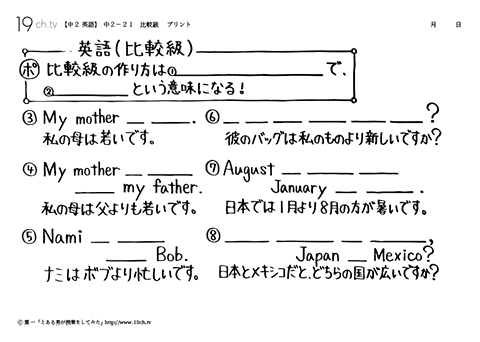 19ch.tv 【中2 英語】 中2-21 比較級 プリント 月 日
英語(比較級)
ポ 比較級の作り方は① で、
② という意味になる!
③ My mother _ _.
私の母は若いです。
④ My mother _ _
_ my father.
私の母は父よりも若いです。
⑤ Nami _ _
_ Bob.
ナミはボブより忙しいです。
⑥ _ _ _ _ _ _?
彼のバッグは私のものより新しいですか?
⑦ August _ _ _
January _ _.
日本では1月より8月の方が暑いです。
⑧ _ _ _ _ _,
Japan _ Mexico?
日本とメキシコだと、どちらの国が広いですか?
© 葉一「とある男が授業をしてみた」http://www.19ch.tv